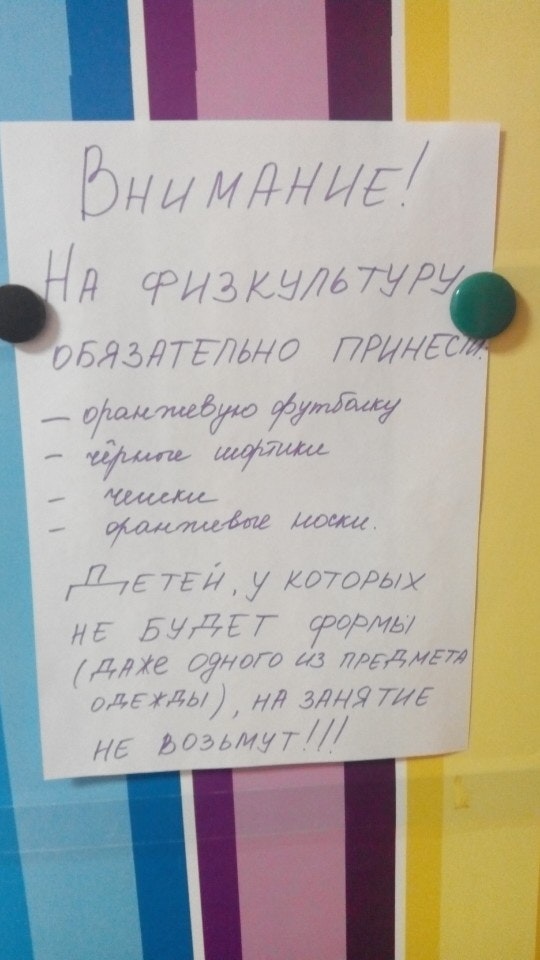 Внимание!
На физкультуру
обязательно принести:
– оранжевую футболку
– чёрные шортики
– чешки
– оранжевые носки.
Детей, у которых
не будет формы
(даже одного из предмета
одежды), на занятие
не возьмут!!!